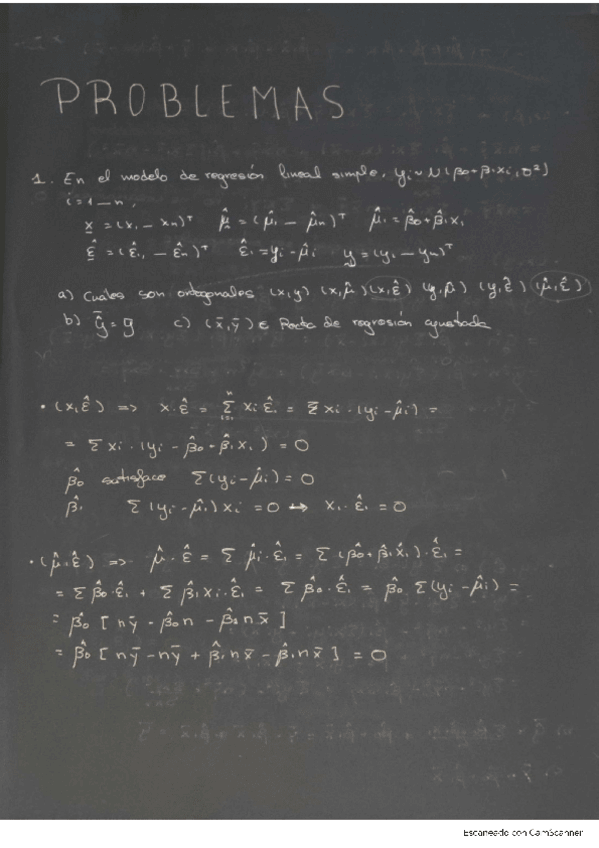 PROBLEMAS
1. En el modelo de regresión lineal simple, yi ~ N(β0+β1xi, σ²)
i=1...n,
x = (x1 ... xn)ᵀ μ̂ = (μ̂1 ... μ̂n)ᵀ μ̂i = β̂0+β̂1xi
ε̂ = (ε̂1, ... ε̂n)ᵀ ε̂i = yi - μ̂i y = (y1 ... yn)ᵀ
a) Cuáles son ortogonales (x,y) (x,μ̂) (x,ε̂) (y,μ̂) (y,ε̂) (μ̂,ε̂)
b) ŷ̄ = ȳ c) (x̄,ȳ) ∈ Recta de regresión ajustada
• (x,ε̂) => x·ε̂ = Σ xi ε̂i = Σ xi·(yi-μ̂i) =
= Σ xi·(yi - β̂0 - β̂1xi) = 0
β̂0 satisface Σ(yi-μ̂i) = 0
β̂1 Σ(yi-μ̂i)xi = 0 ↔ xi·ε̂i = 0
• (μ̂,ε̂) => μ̂·ε̂ = Σ μ̂i·ε̂i = Σ(β̂0+β̂1xi)·ε̂i =
= Σ β̂0·ε̂i + Σ β̂1xi·ε̂i = Σ β̂0·ε̂i = β̂0 Σ(yi-μ̂i) =
= β̂0 [nȳ - β̂0n - β̂1nx̄]
= β̂0 [nȳ - nȳ + β̂1nx̄ - β̂1nx̄] = 0
Escaneado con CamScanner